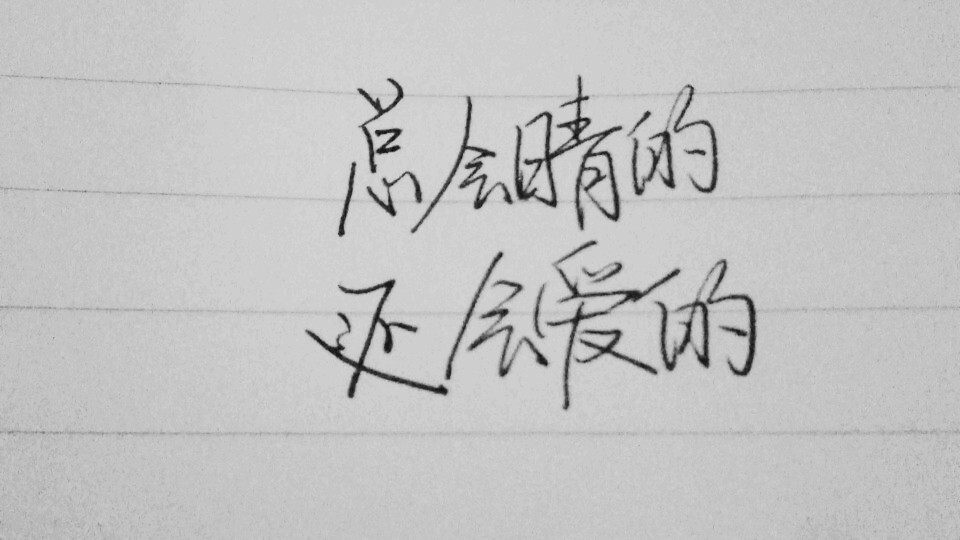 总会晴的
还会爱的